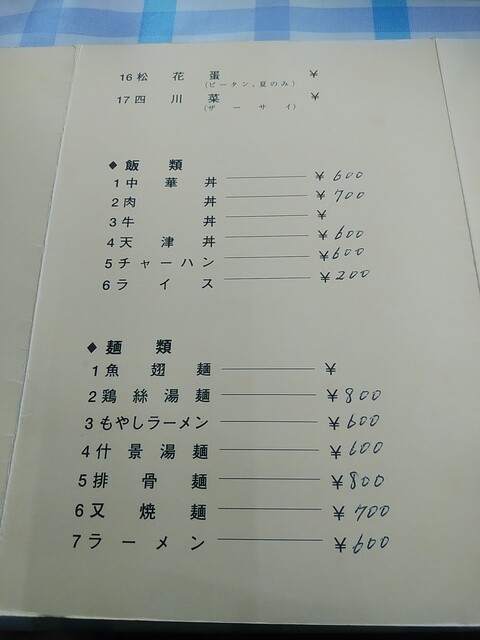 16 松花蛋 ¥
(ピータン、夏のみ)
17 四川菜 ¥
(ザーサイ)
◆ 飯類
1 中華丼 ¥600
2 肉丼 ¥700
3 牛丼 ¥
4 天津丼 ¥600
5 チャーハン ¥600
6 ライス ¥200
◆ 麺類
1 魚翅麺 ¥
2 鶏絲湯麺 ¥800
3 もやしラーメン ¥600
4 什景湯麺 ¥600
5 排骨麺 ¥800
6 叉焼麺 ¥700
7 ラーメン ¥600